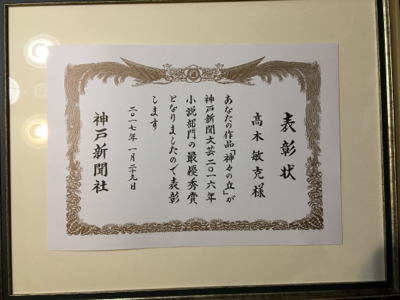 表彰状
高木敏克様
あなたの作品「神々の丘」が
神戸新聞文芸二〇一六年
小説部門の最優秀賞
となりましたので表彰
します
二〇一七年一月二十九日
神戸新聞社